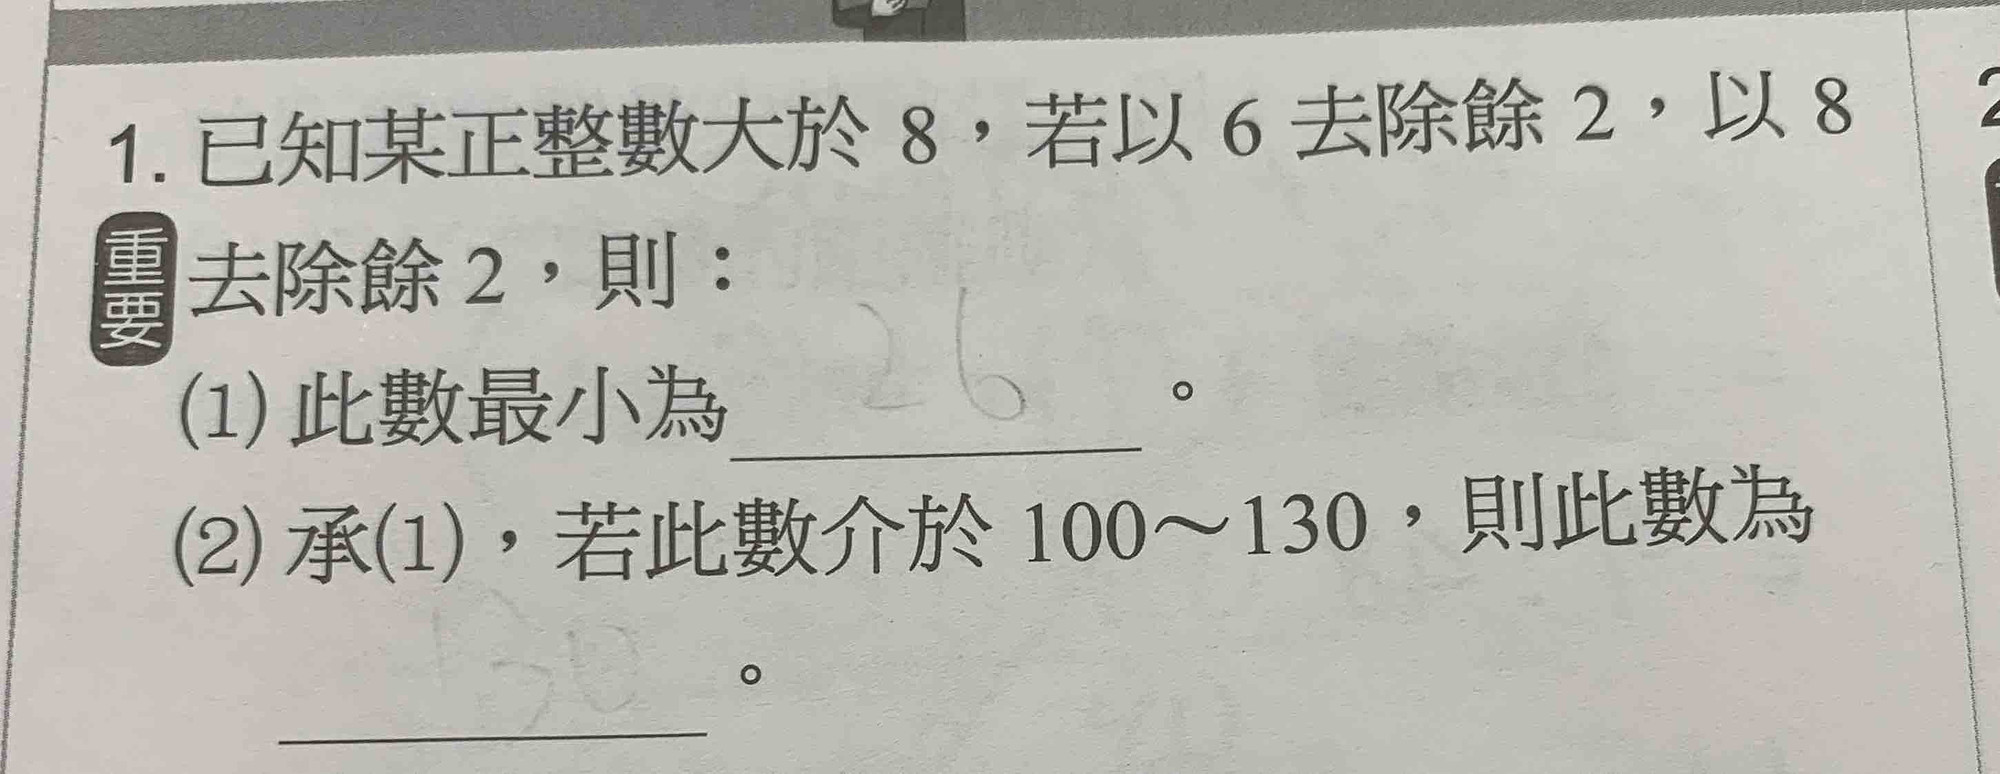 1. 已知某正整數大於 8，若以 6 去除餘 2，以 8
重要
去除餘 2，則：
(1) 此數最小為 26 。
(2) 承(1)，若此數介於 100～130，則此數為
130 。
2